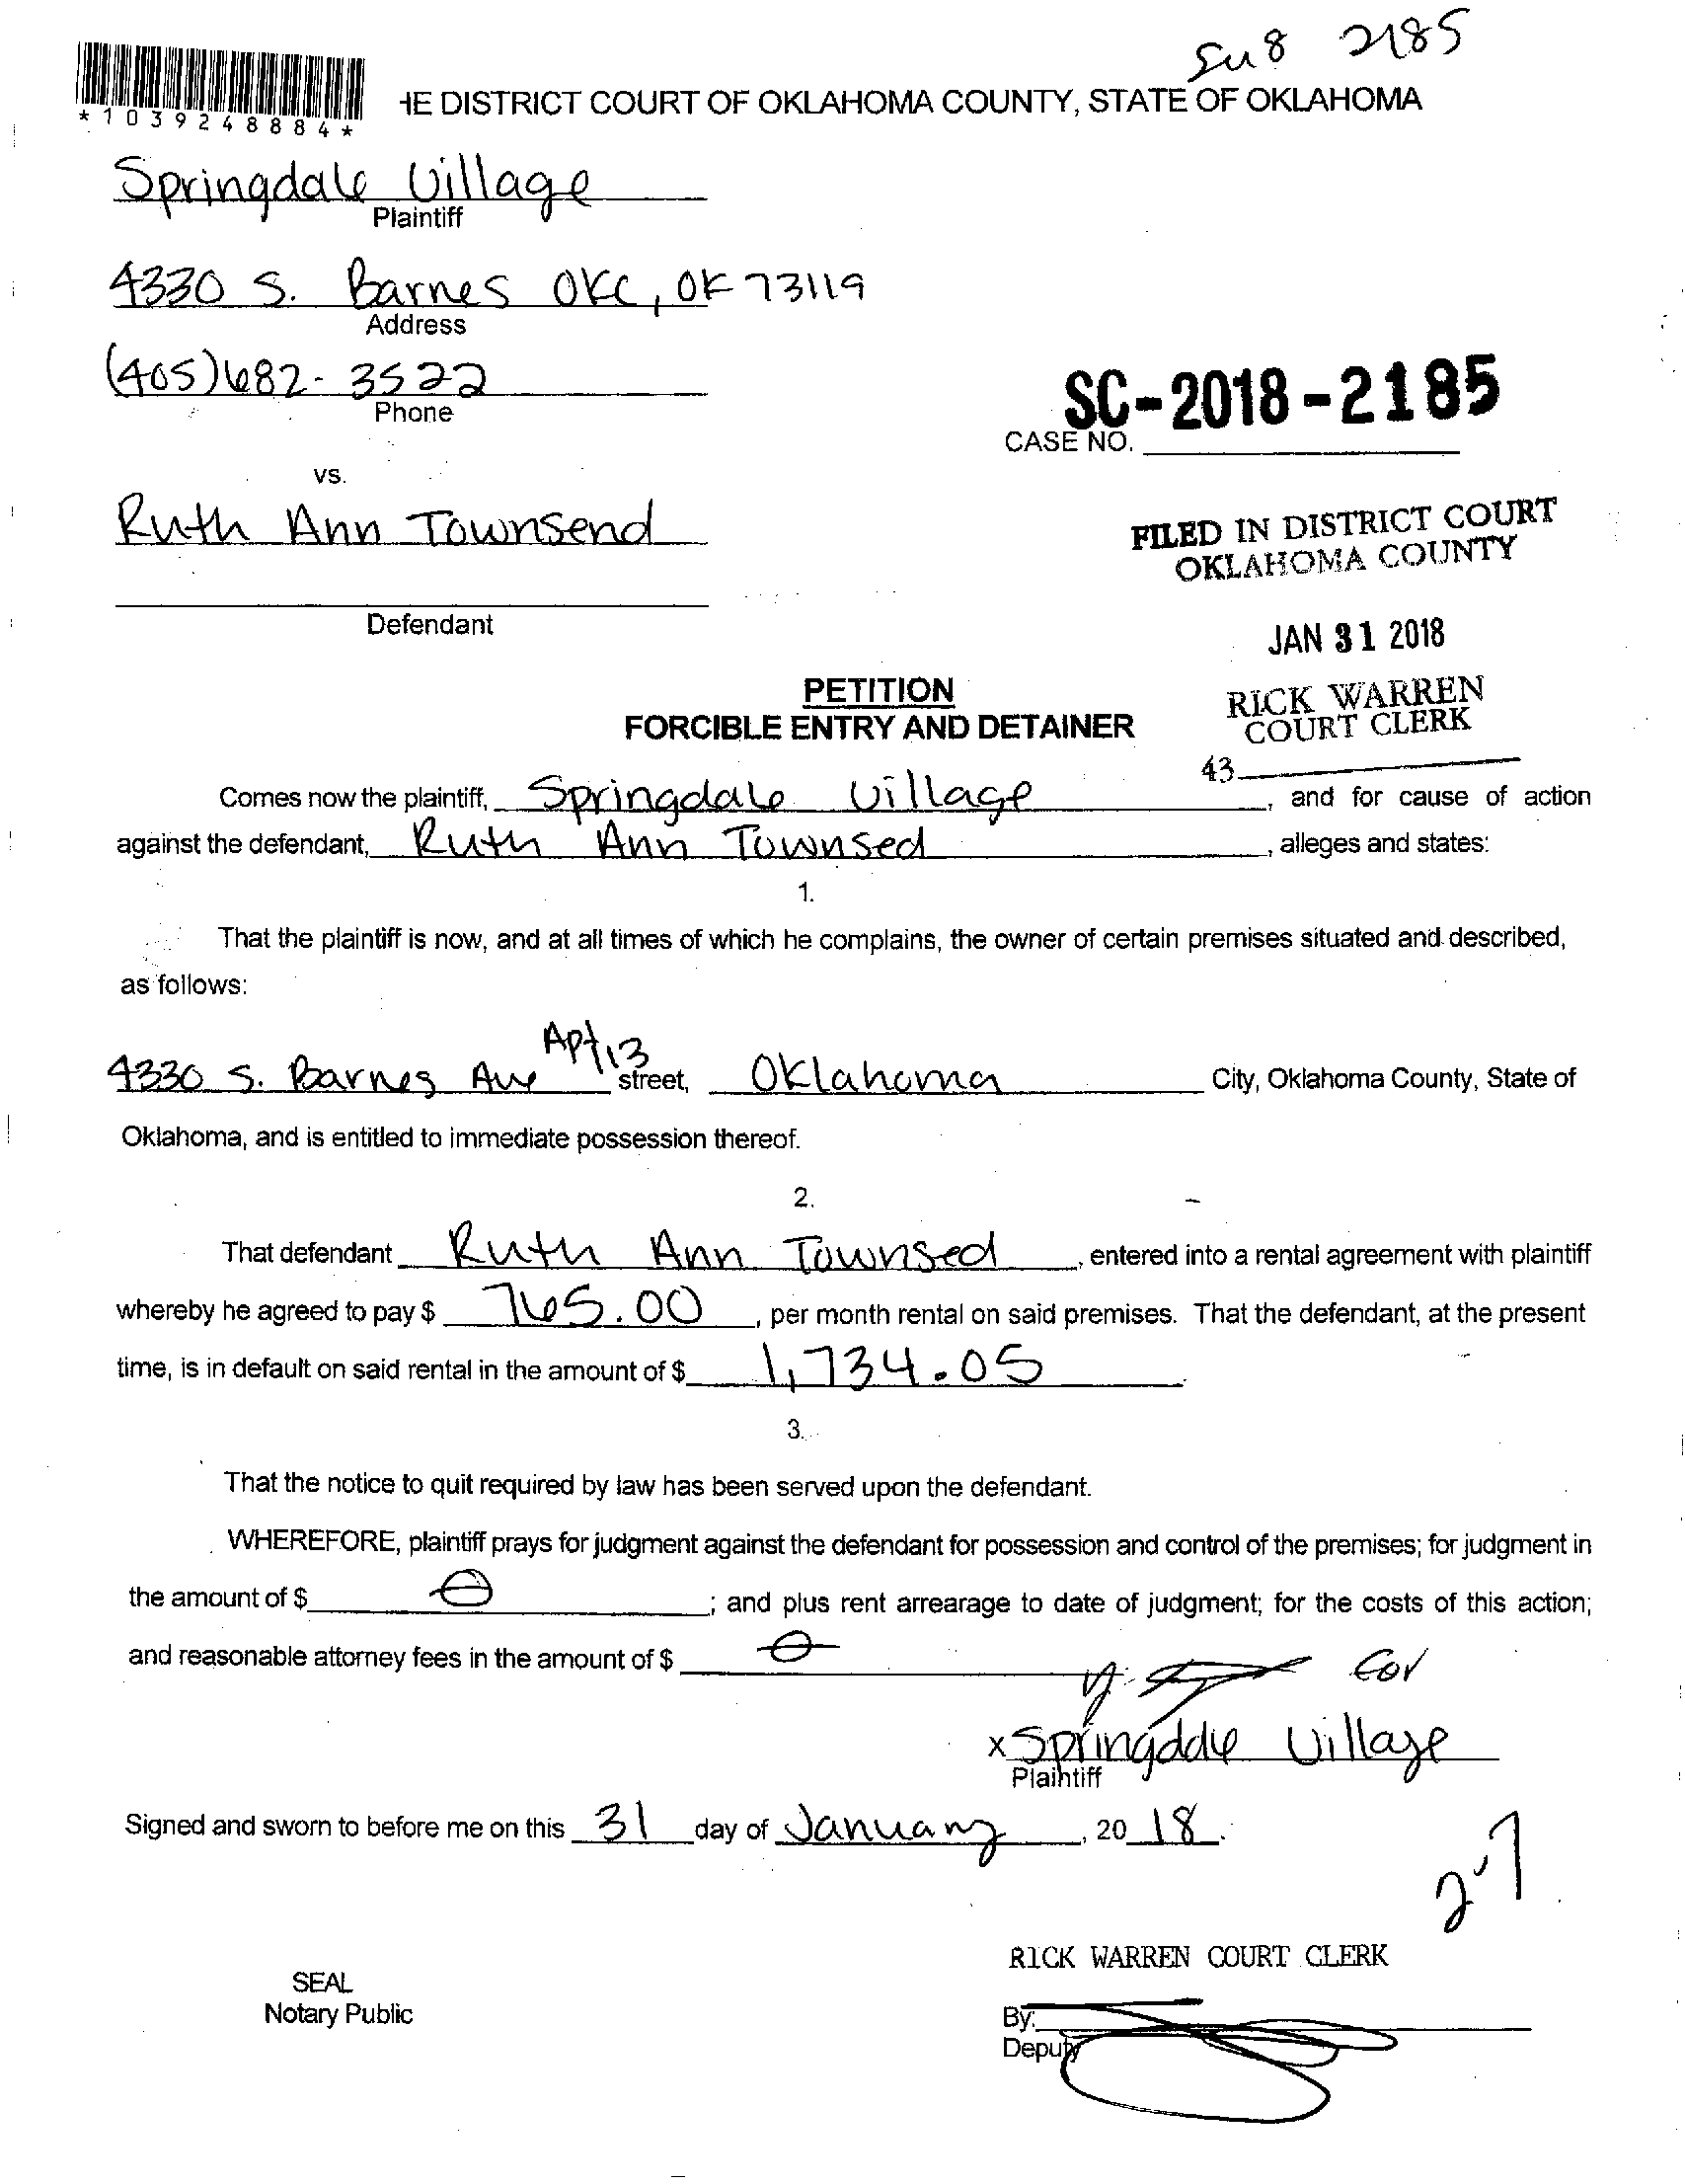 2185
HE DISTRICT COURT OF OKLAHOMA COUNTY, STATE OF OKLAHOMA
*1039248884*
Springdale Village
Plaintiff
4330 S. Barnes OKC, OK 73119
Address
(405)682-3522
Phone
SC-2018-2185
CASE NO.
vs.
Ruth Ann Townsend
FILED IN DISTRICT COURT
OKLAHOMA COUNTY
Defendant
JAN 31 2018
PETITION
RICK WARREN
COURT CLERK
FORCIBLE ENTRY AND DETAINER
43
Comes now the plaintiff, Springdale Village, and for cause of action
against the defendant, Ruth Ann Townsed, alleges and states:
1.
That the plaintiff is now, and at all times of which he complains, the owner of certain premises situated and described,
as follows:
4330 S. Barnes Ave Apt 13 street, Oklahoma City, Oklahoma County, State of
Oklahoma, and is entitled to immediate possession thereof.
2.
That defendant Ruth Ann Townsed, entered into a rental agreement with plaintiff
whereby he agreed to pay $ 765.00, per month rental on said premises. That the defendant, at the present
time, is in default on said rental in the amount of $ 1,734.05.
3.
That the notice to quit required by law has been served upon the defendant.
WHEREFORE, plaintiff prays for judgment against the defendant for possession and control of the premises; for judgment in
the amount of $ 0; and plus rent arrearage to date of judgment; for the costs of this action;
and reasonable attorney fees in the amount of $ 0
for
x Springdale Village
Plaintiff
Signed and sworn to before me on this 31 day of January, 2018.
2-7
RICK WARREN COURT CLERK
SEAL
Notary Public
By:
Deputy